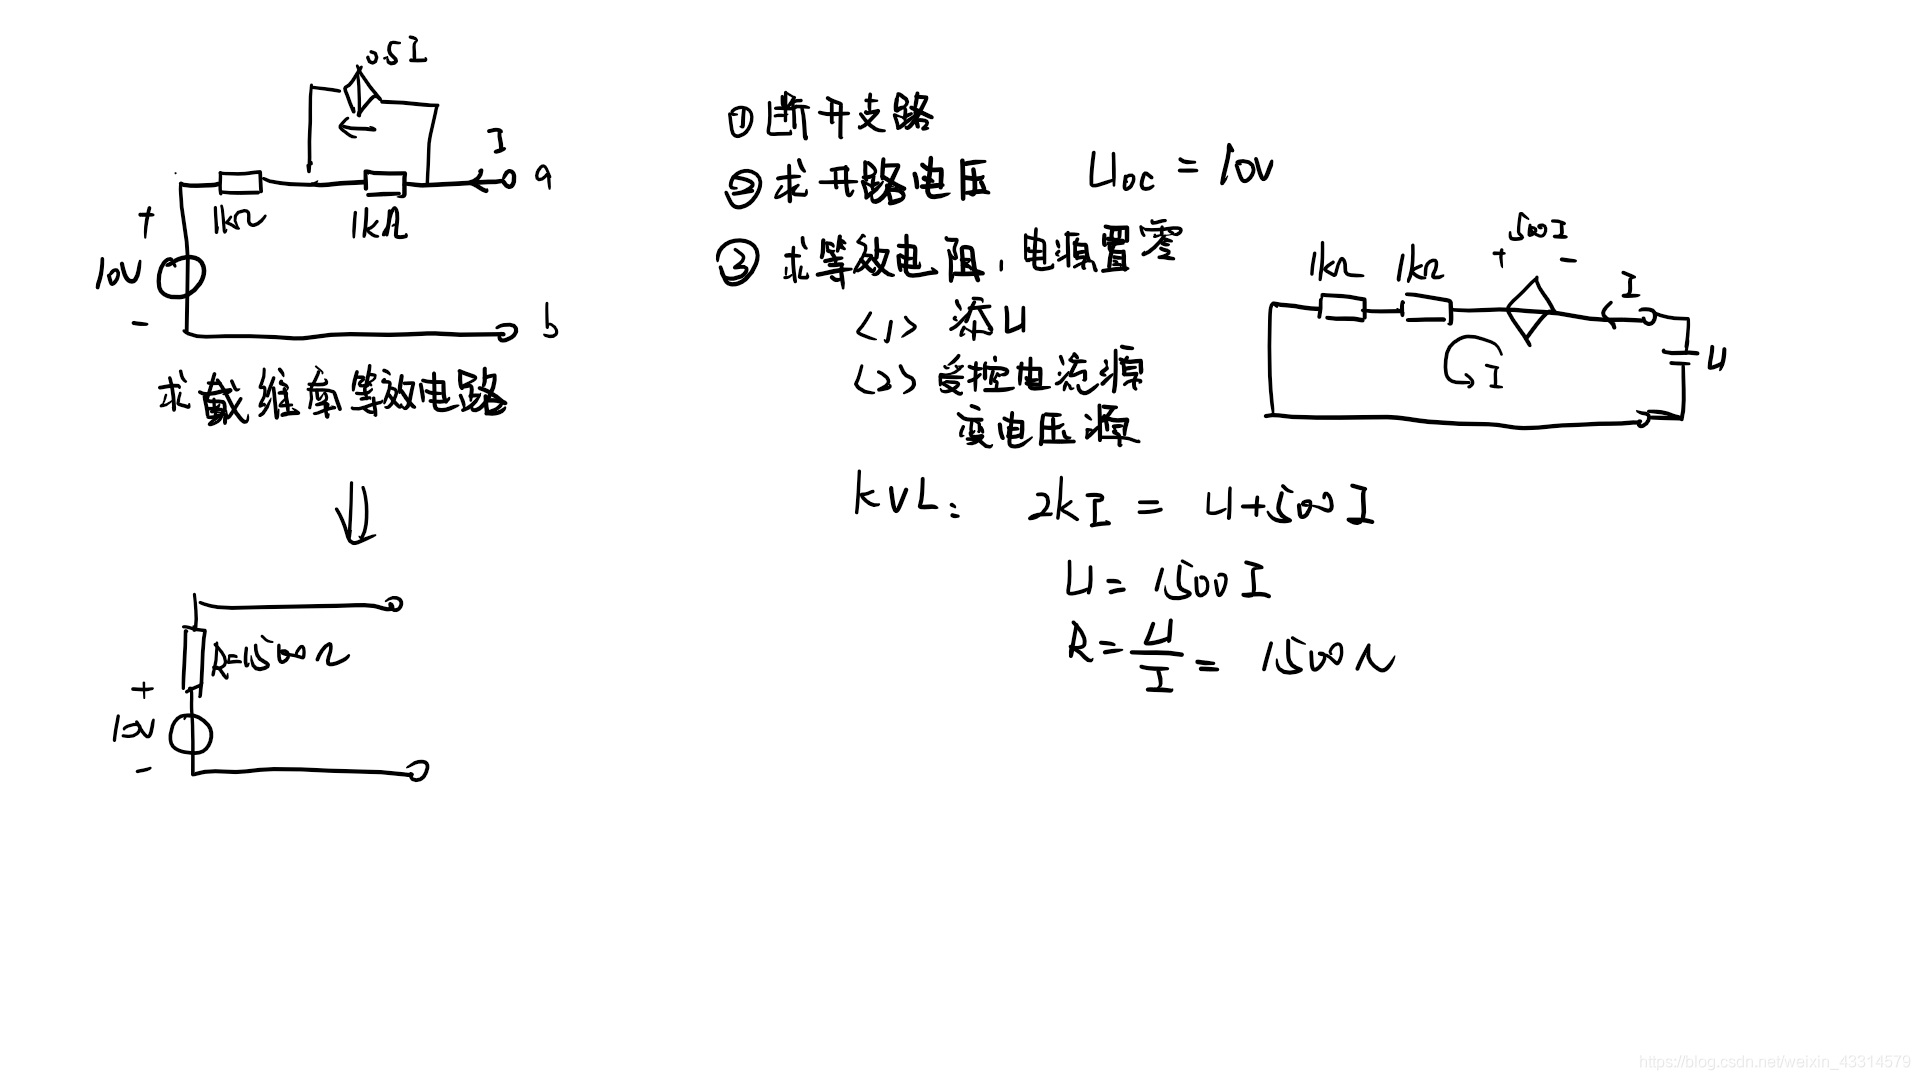 0.5I
I
a
1kΩ
1kΩ
+
10V
-
b
求戴维南等效电路
R=1500Ω
+
10V
-
① 断开支路
② 求开路电压 Uoc = 10V
③ 求等效电阻，电源置零
<1> 添U
<2> 受控电流源
变电压源
500I
+ -
1kΩ 1kΩ
I
I
U
KVL: 2kI = U+500I
U = 1500I
R = U/I = 1500Ω
https://blog.csdn.net/weixin_43314579